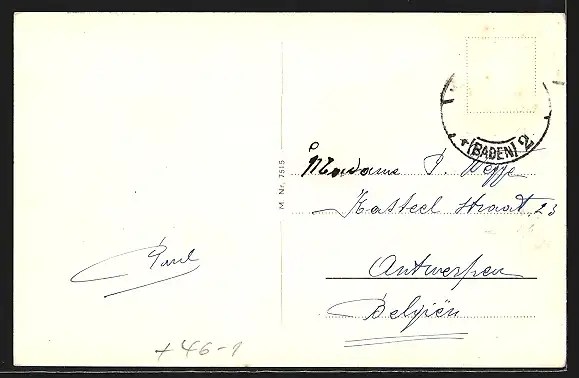 * (BADEN) 2
Madame P. Weyje
Kasteel straat, 23
Antwerpen
Belgiën
Paul
M. Nr. 7515
+ 46-1